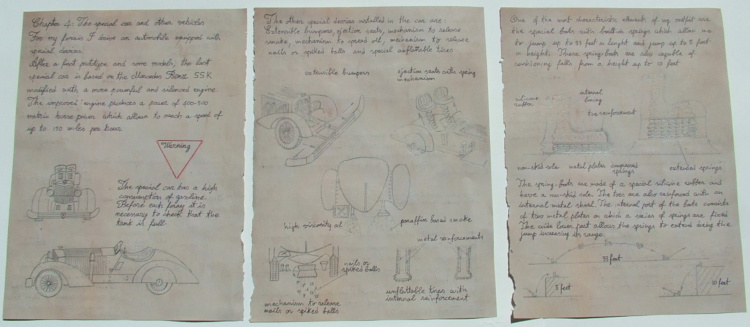 Chapter 4: The special car and other vehicles
For my forays I have an automobile equipped with
special devices.
After a first prototype and some models, the last
special car is based on the Mercedes Benz SSK
modified with a more powerful and silenced engine.
The improved engine produces a power of 400-500
metric horse power which allows to reach a speed of
up to 150 miles per hour.
Warning
The special car has a high
consumption of gasoline.
Before each foray it is
necessary to check that the
tank is full.
The other special devices installed in the car are:
Extensible bumpers, ejection seats, mechanism to release
smoke, mechanism to spread oil, mechanism to release
nails or spiked balls and special inflattable tires
extensible bumpers
ejection seats with spring
mechanism
high viscosity oil
paraffin based smoke
metal reinforcements
nails or
spiked balls
mechanism to release
nails or spiked balls
unflattable tires with
internal reinforcement
One of the most characteristic element of my outfit are
the special boots with built-in springs which allow me
to jump up to 33 feet in lenght and jump up to 5 feet
in height. These spring-boots are also capable of
cushioning falls from a height up to 10 feet
silicone
rubber
internal
lining
toe reinforcement
non-skid sole
metal plates
compressed
springs
extended springs
The spring-boots are made of a special silicone rubber and
have a non-skid sole. The toes are also reinforced with an
internal metal sheet. The internal part of the boots consists
of two metal plates on which a series of springs are fixed.
The wide lower part allows the springs to extend during the
jump increasing its range.
33 feet
5 feet
10 feet